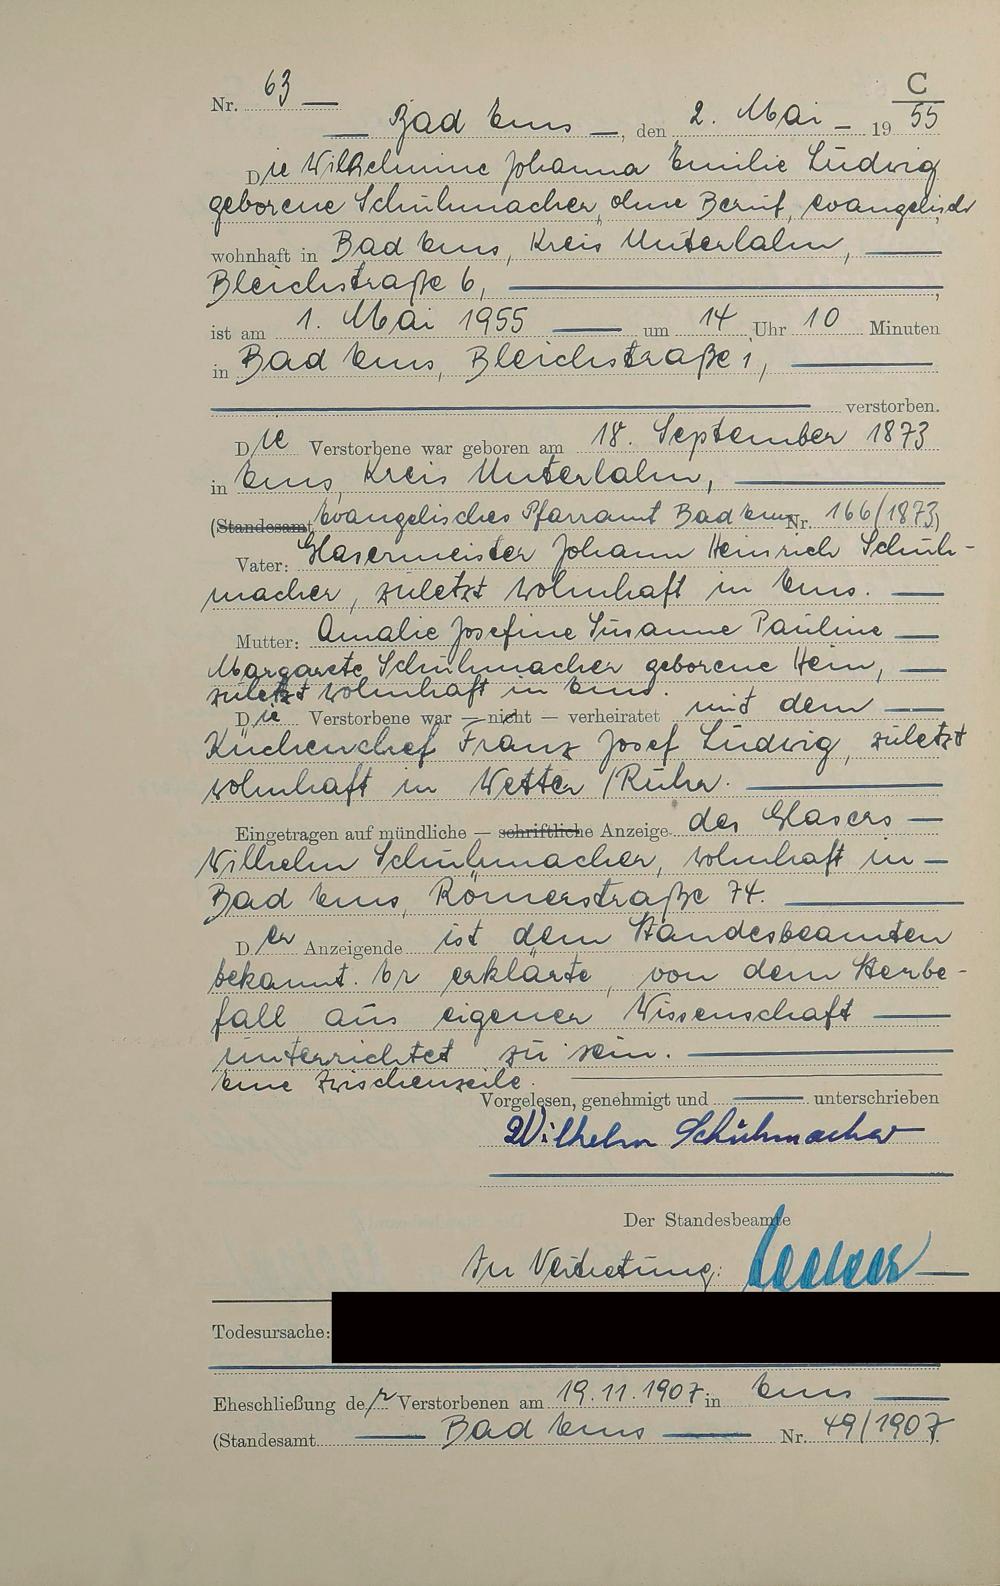 C
Nr. 63
Bad Ems, den 2. Mai 1955
Die Wilhelmine Johanna Emilie Ludwig
geborene Schuhmacher, ohne Beruf, evangelisch
wohnhaft in Bad Ems, Kreis Unterlahn,
Bleichstraße 6,
ist am 1. Mai 1955 um 14 Uhr 10 Minuten
in Bad Ems, Bleichstraße 1,
verstorben.
Die Verstorbene war geboren am 18. September 1873
in Ems, Kreis Unterlahn,
(Standesamt Evangelisches Pfarramt Bad Ems Nr. 166/1873)
Vater: Glasermeister Johann Heinrich Schuh-
macher, zuletzt wohnhaft in Ems.
Mutter: Amalie Josefine Susanne Pauline
Margarete Schuhmacher geborene Hein,
zuletzt wohnhaft in Ems.
Die Verstorbene war — nicht — verheiratet mit dem
Küchenchef Franz Josef Ludwig, zuletzt
wohnhaft in Wetter/Ruhr.
Eingetragen auf mündliche — schriftliche Anzeige des Glasers
Wilhelm Schuhmacher, wohnhaft in
Bad Ems, Römerstraße 74.
Der Anzeigende ist dem Standesbeamten
bekannt. Er erklärte, von dem Sterbe-
fall aus eigener Wissenschaft
unterrichtet zu sein.
Eine Zwischenzeile.
Vorgelesen, genehmigt und unterschrieben
Wilhelm Schuhmacher
Der Standesbeamte
In Vertretung:
Todesursache:
Eheschließung der Verstorbenen am 19.11.1907 in Ems
(Standesamt Bad Ems Nr. 49/1907